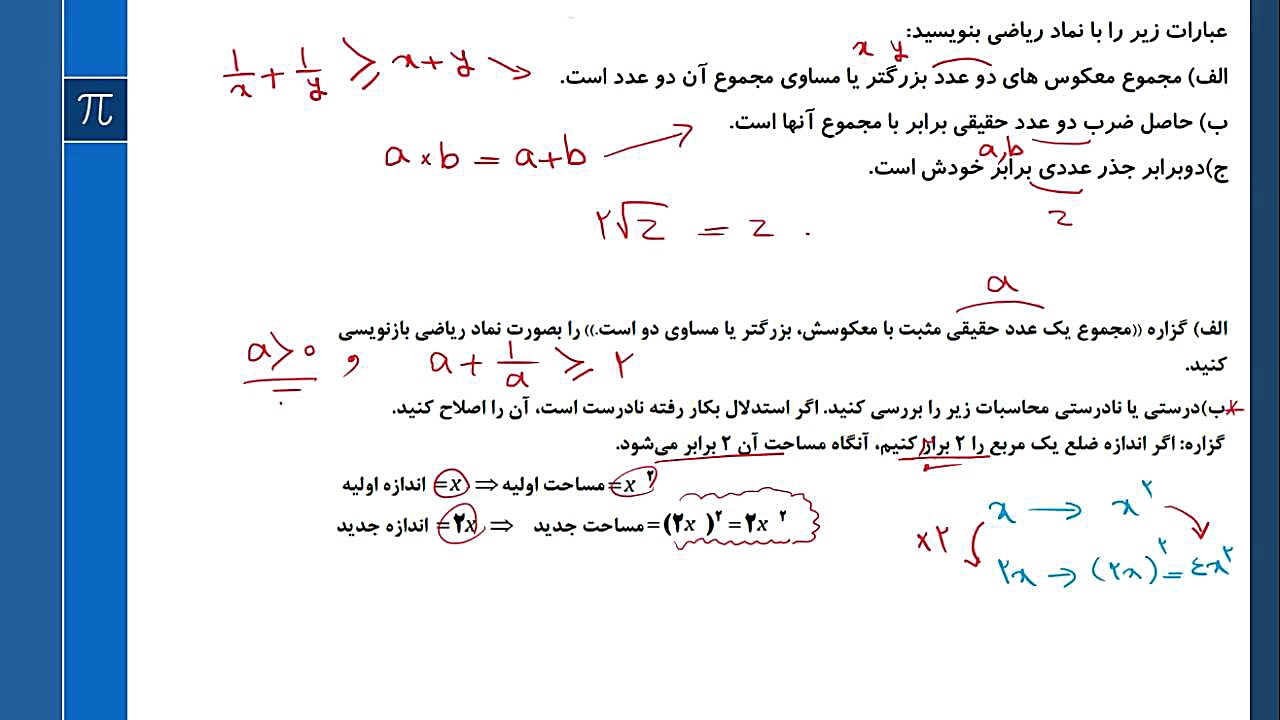 عبارات زیر را با نماد ریاضی بنویسید:
x y
الف) مجموع معکوس های دو عدد بزرگتر یا مساوی مجموع آن دو عدد است.
1/x + 1/y ⩾ x+y
ب) حاصل ضرب دو عدد حقیقی برابر با مجموع آنها است.
a,b
a × b = a+b
ج)دوبرابر جذر عددی برابر خودش است.
z
۲√z = z .
a
الف) گزاره ((مجموع یک عدد حقیقی مثبت با معکوسش، بزرگتر یا مساوی دو است.)) را بصورت نماد ریاضی بازنویسی
کنید.
a>۰ , a + 1/a ⩾ ۲
ب)درستی یا نادرستی محاسبات زیر را بررسی کنید. اگر استدلال بکار رفته نادرست است، آن را اصلاح کنید.
گزاره: اگر اندازه ضلع یک مربع را ۲ برابر کنیم، آنگاه مساحت آن ۲ برابر می‌شود.
اندازه اولیه =x ⇒ مساحت اولیه =x ۲
اندازه جدید =۲x ⇒ مساحت جدید =(۲x )۲ =۲x ۲
x → x۲
×۲
۲x → (۲x)۲ = ٤x۲
π